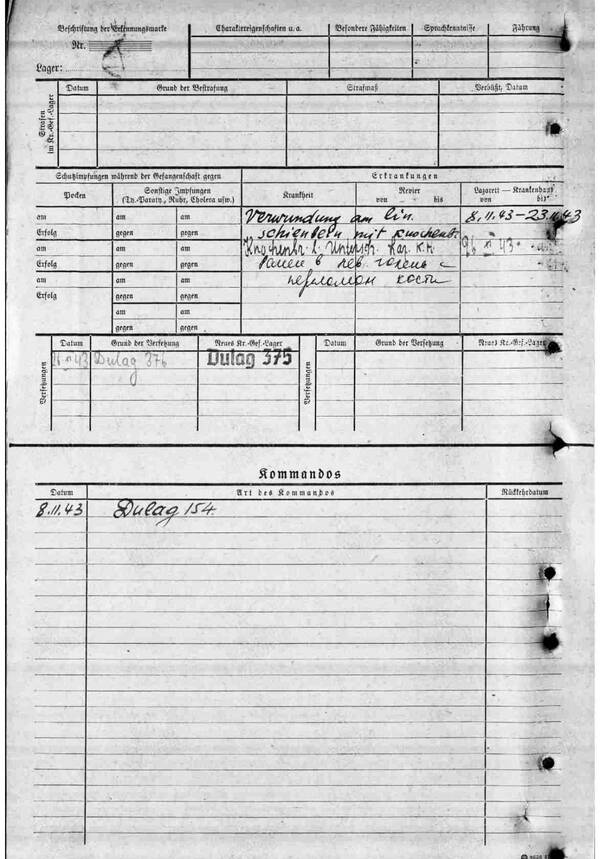 Beschriftung der Erkennungsmarke
Nr.
Lager:
Charaktereigenschaften u.a.
Besondere Fähigkeiten
Sprachkenntnisse
Führung
Strafen im Kr.-Gef.-Lager
Datum
Grund der Bestrafung
Strafmaß
Verbüßt, Datum
Schutzimpfungen während der Gefangenschaft gegen
Erkrankungen
Pocken
Sonstige Impfungen
(Ty.-Paraty., Ruhr, Cholera usw.)
Krankheit
Revier
von - bis
Lazarett - Krankenhaus
von bis
am am am Verwundung am lin. 8.11.43-23.11.43
Erfolg gegen gegen schienbein mit Knochenbr.
am am am Knochenbr. l. Untersch.
Erfolg gegen gegen Ранен в лев. голень с
am am am переломом кости
Erfolg gegen gegen
am am
gegen gegen
Versetzungen
Datum
Grund der Versetzung
Neues Kr.-Gef.-Lager
Versetzungen
Datum
Grund der Versetzung
Neues Kr.-Gef.-Lager
43 Dulag 376 Dulag 375
Kommandos
Datum
Art des Kommandos
Rückkehrdatum
8.11.43 Dulag 154